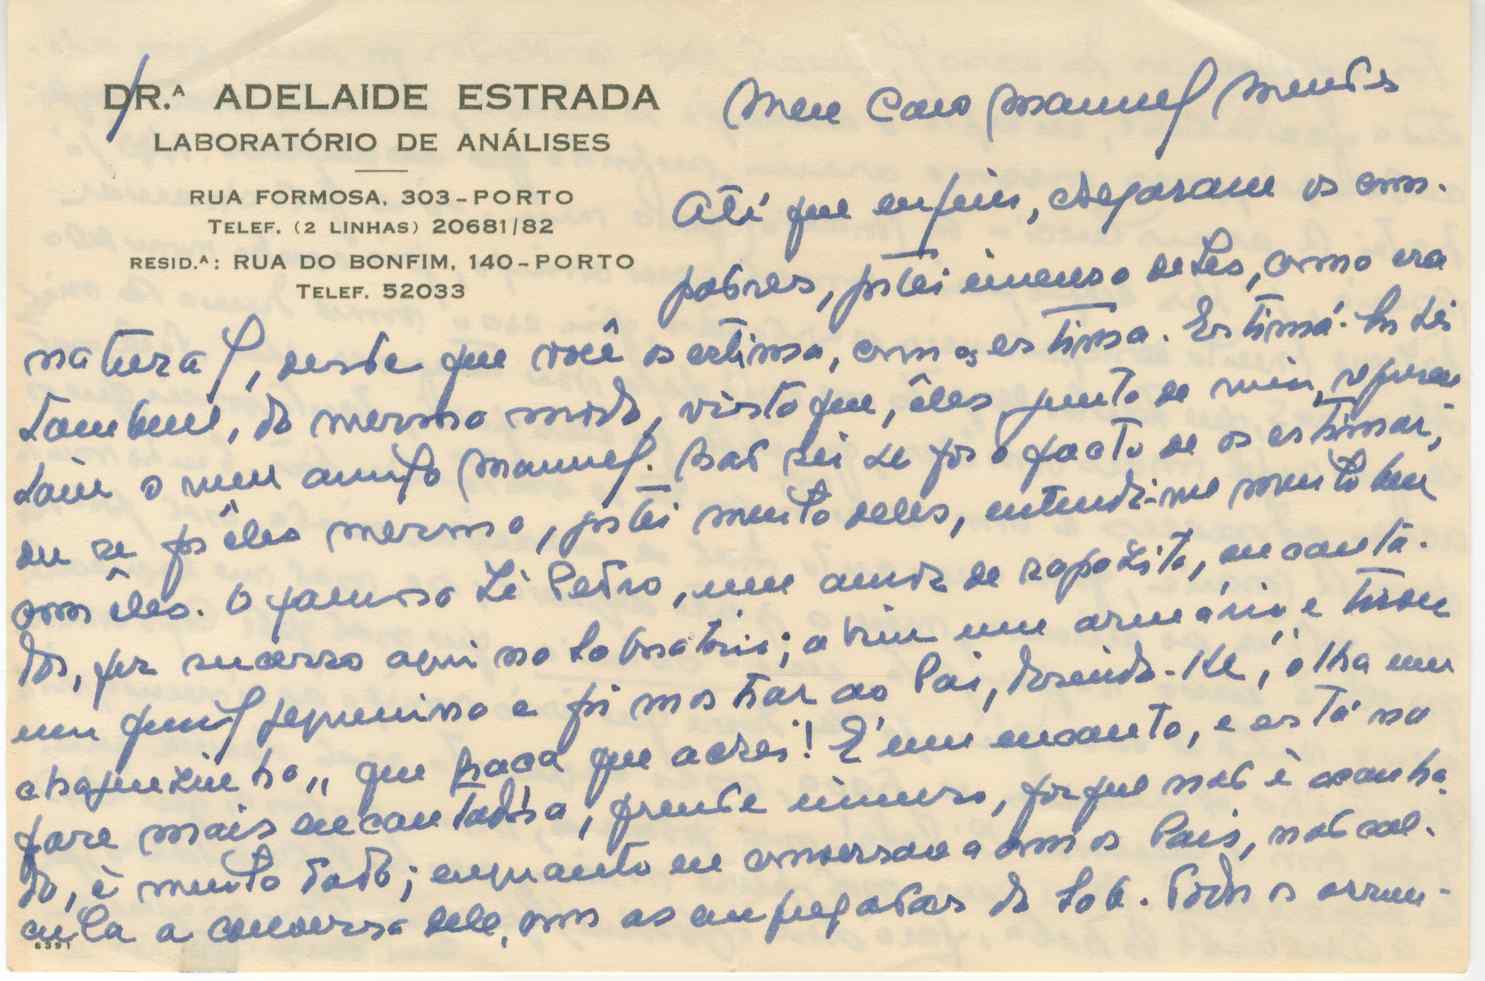 DR.ª ADELAIDE ESTRADA
LABORATÓRIO DE ANÁLISES
RUA FORMOSA, 303-PORTO
TELEF. (2 LINHAS) 20681/82
RESID.ª: RUA DO BONFIM, 140-PORTO
TELEF. 52033
Meu Caro Manuel Mendes
Até que enfim, chegaram os com-
padres, gostei imenso deles, como era
natural, desde que você os estima, como os estima. Estimá-los
também, do mesmo modo, visto que, êles, junto de mim,
o meu amigo Manuel. Não sei se foi o facto de os estimar,
ou se foi êles mesmo, gostei muito deles, entendi-me muito bem
com êles. O famoso Zé Pedro, um amor de rapazito, encanta-
dor, fez sucesso aqui no Laboratório; abriu um armário e tirou
um funil pequenino e foi mostrar ao Pai, dizendo-lhe, "olha um
chapeuzinho" que graça que achei! É um encanto, e está na
fase mais encantadora, prende imenso, porque não é acanha-
do, é muito dado; enquanto eu conversava com os Pais, não
a conversa dele, com as empregadas do Lab. Todos
6391